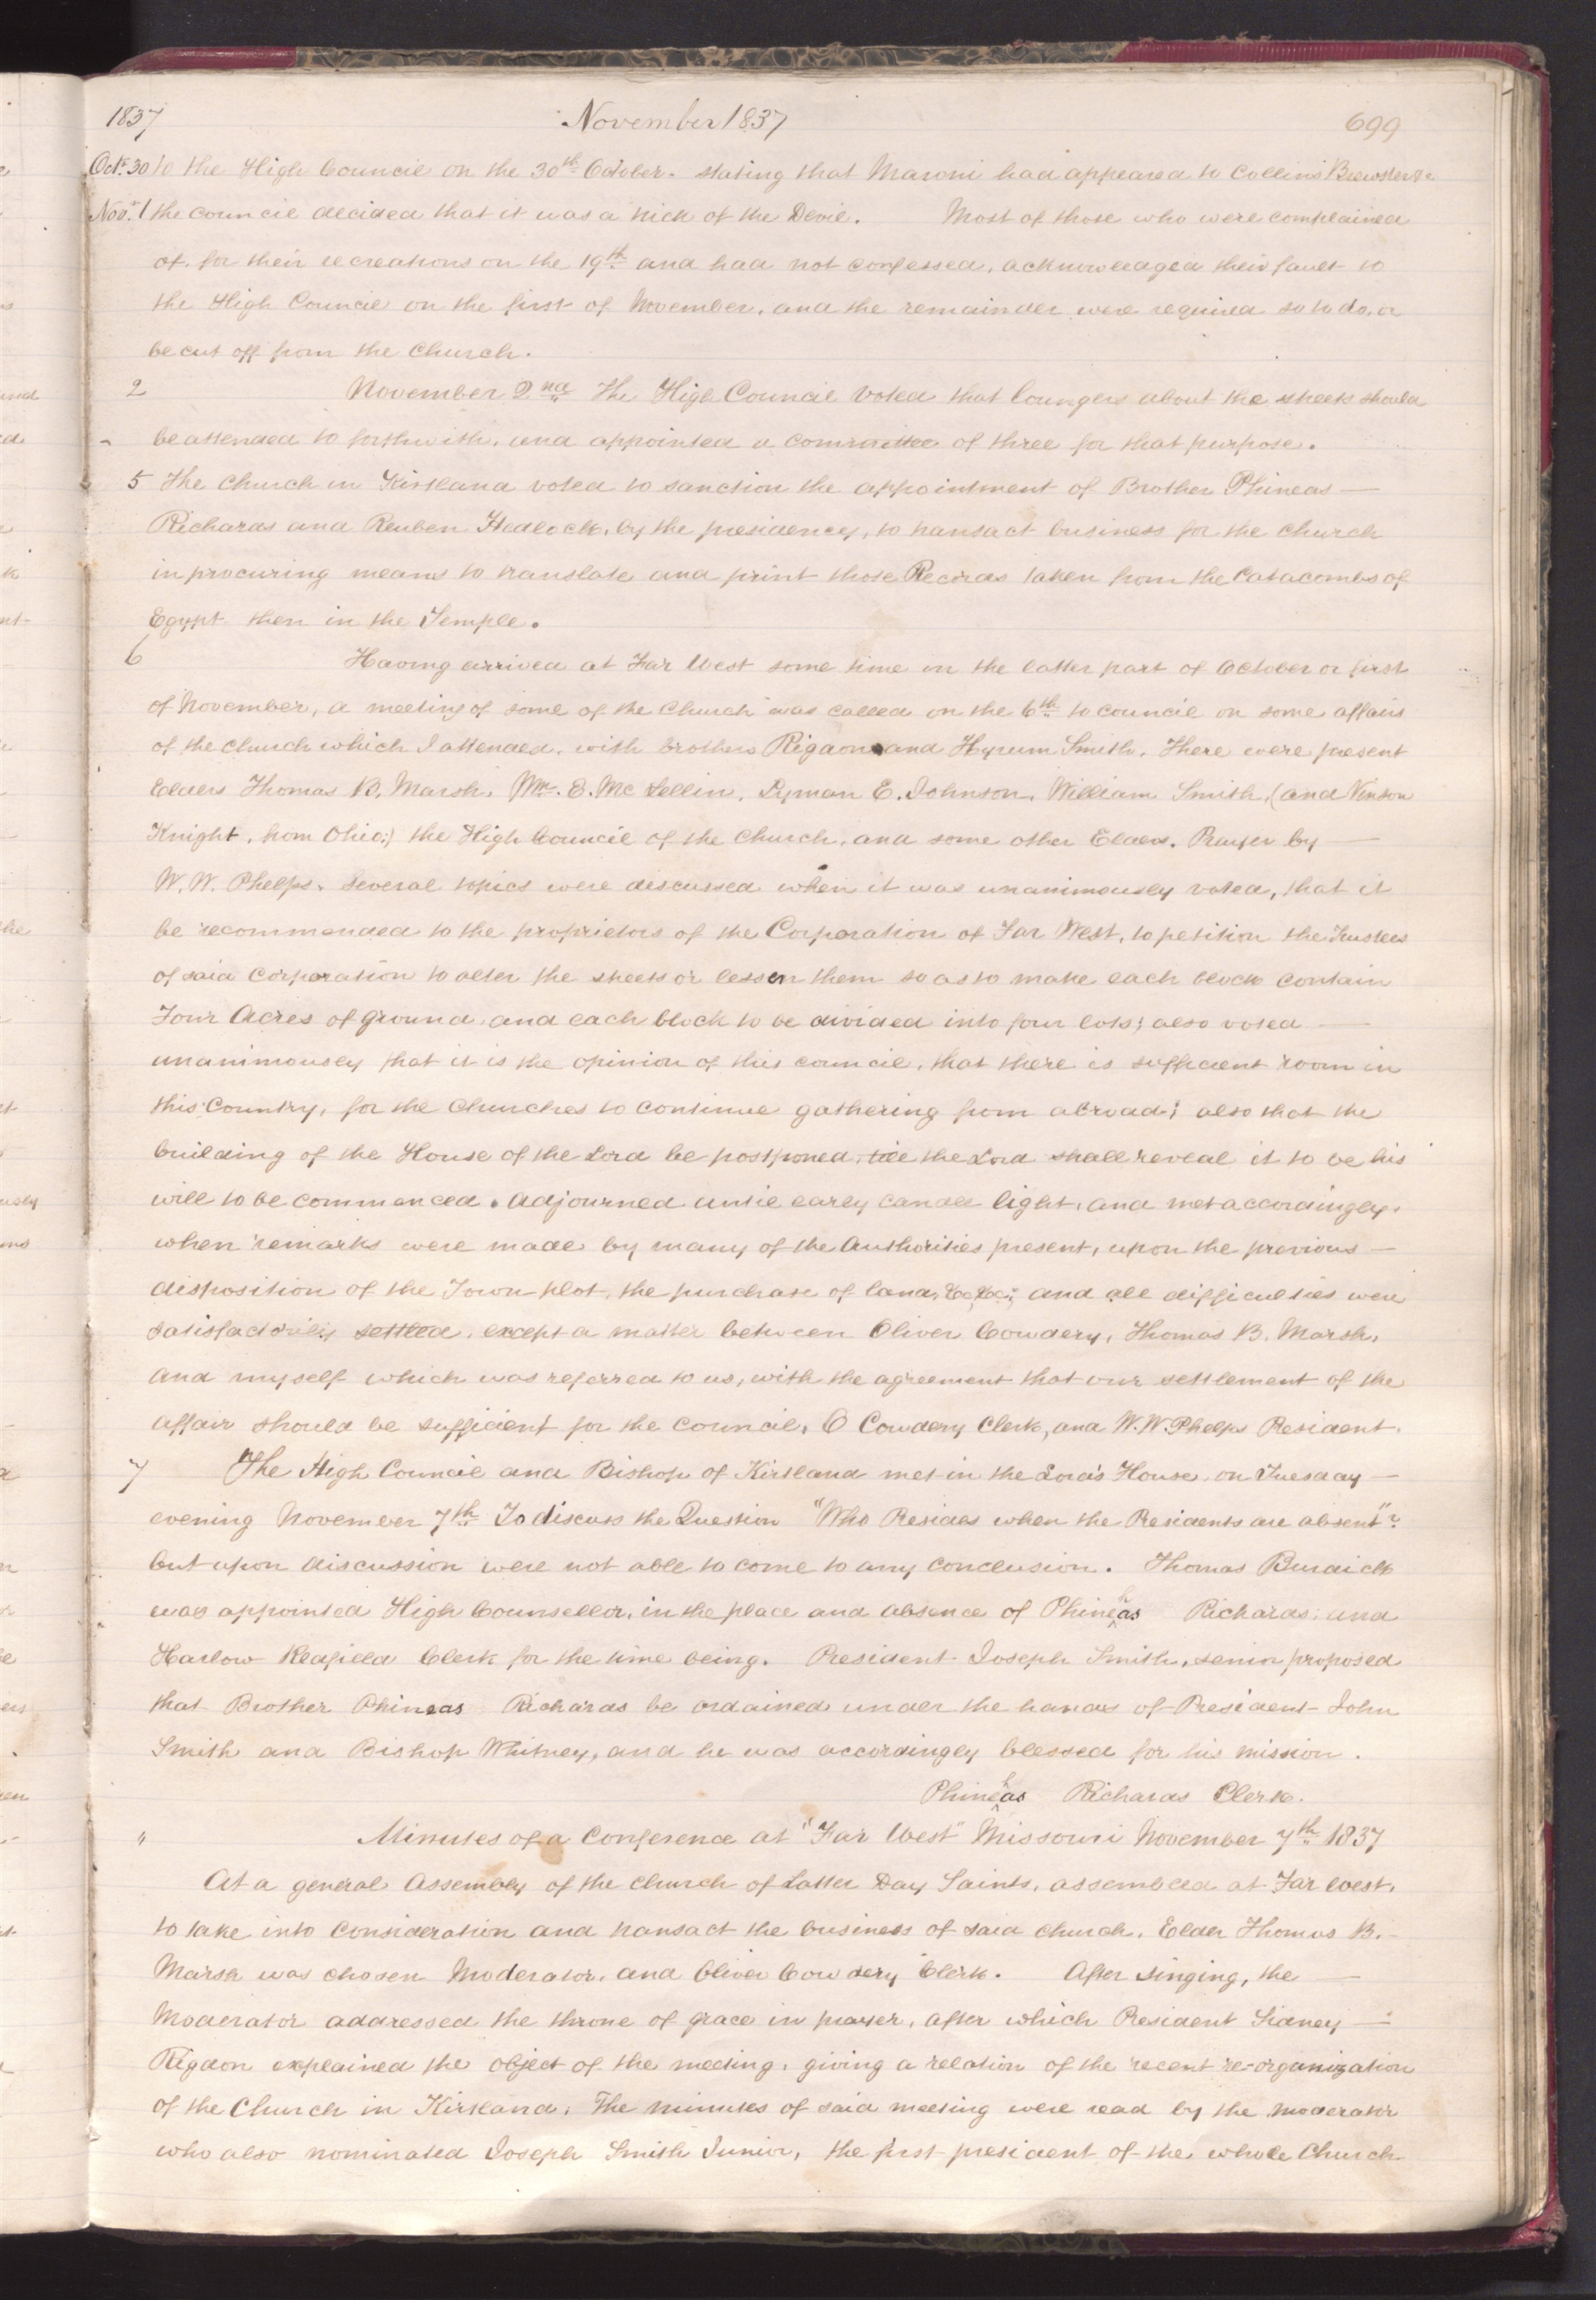 1837 November 1837 699
Oct. 30 to the High Council on the 30th October. stating that Maroni had appeared to Collins Brewster &c
Nov. 1 the council decided that it was a trick of the Devil. Most of those who were complained
of, for their recreations on the 19th and had not confessed, acknowledged their fault to
the High Council on the first of November, and the remainder were required so to do, or
be cut off from the Church.
2 November 2nd The High Council voted that loungers about the streets should
be attended to forthwith, and appointed a committee of three for that purpose.
5 The Church in Kirtland voted to sanction the appointment of Brother Phineas —
Richards and Reuben Hedlock, by the presidency, to transact business for the church
in procuring means to translate and print those Records taken from the Catacombs of
Egypt then in the Temple.
6 Having arrived at Far West some time in the latter part of October or first
of November, a meeting of some of the Church was called on the 6th to council on some affairs
of the church which I attended, with brothers Rigdon and Hyrum Smith. There were present
Elders Thomas B. Marsh, Wm. E. Mc Lellin, Lyman E. Johnson, William Smith, (and Vinson
Knight, from Ohio;) the High Council of the Church, and some other Elders. Prayer by —
W. W. Phelps. Several topics were discussed when it was unanimously voted, that it
be recommended to the proprietors of the Corporation of Far West, to petition the Trustees
of said Corporation to alter the streets or lessen them so as to make each block contain
Four Acres of ground, and each block to be divided into four lots; also voted —
unanimously that it is the opinion of this council, that there is sufficient room in
this Country, for the Churches to continue gathering from abroad; also that the
building of the House of the Lord be postponed, till the Lord shall reveal it to be his
will to be commenced. Adjourned until early candle light, and met accordingly,
when remarks were made by many of the Authorities present, upon the previous —
disposition of the Town plot, the purchase of land, &c, &c; and all difficulties were
satisfactorily settled, except a matter between Oliver Cowdery, Thomas B. Marsh,
and myself which was referred to us, with the agreement that our settlement of the
affair should be sufficient for the council. O Cowdery Clerk, and W. W. Phelps President.
7 The High Council and Bishop of Kirtland met in the Lord's House on Tuesday —
evening November 7th To discuss the Question "Who Presides when the Presidents are absent"?
but upon discussion were not able to come to any conclusion. Thomas Burdick
was appointed High Counsellor, in the place and absence of Phinehas Richards; and
Harlow Redfield Clerk for the time being. President Joseph Smith, senior proposed
that Brother Phineas Richards be ordained under the hands of President John
Smith and Bishop Whitney, and he was accordingly blessed for his mission.
Phinehas Richards Clerk.
" Minutes of a Conference at "Far West" Missouri November 7th 1837
At a general Assembly of the Church of Latter Day Saints, assembled at Far West,
to take into consideration and transact the business of said church, Elder Thomas B. -
Marsh was chosen Moderator, and Oliver Cowdery Clerk. After singing, the —
Moderator addressed the throne of grace in prayer, after which President Sidney —
Rigdon explained the object of the meeting, giving a relation of the recent re-organization
of the Church in Kirtland. The minutes of said meeting were read by the moderator
who also nominated Joseph Smith Junior, the first president of the whole Church